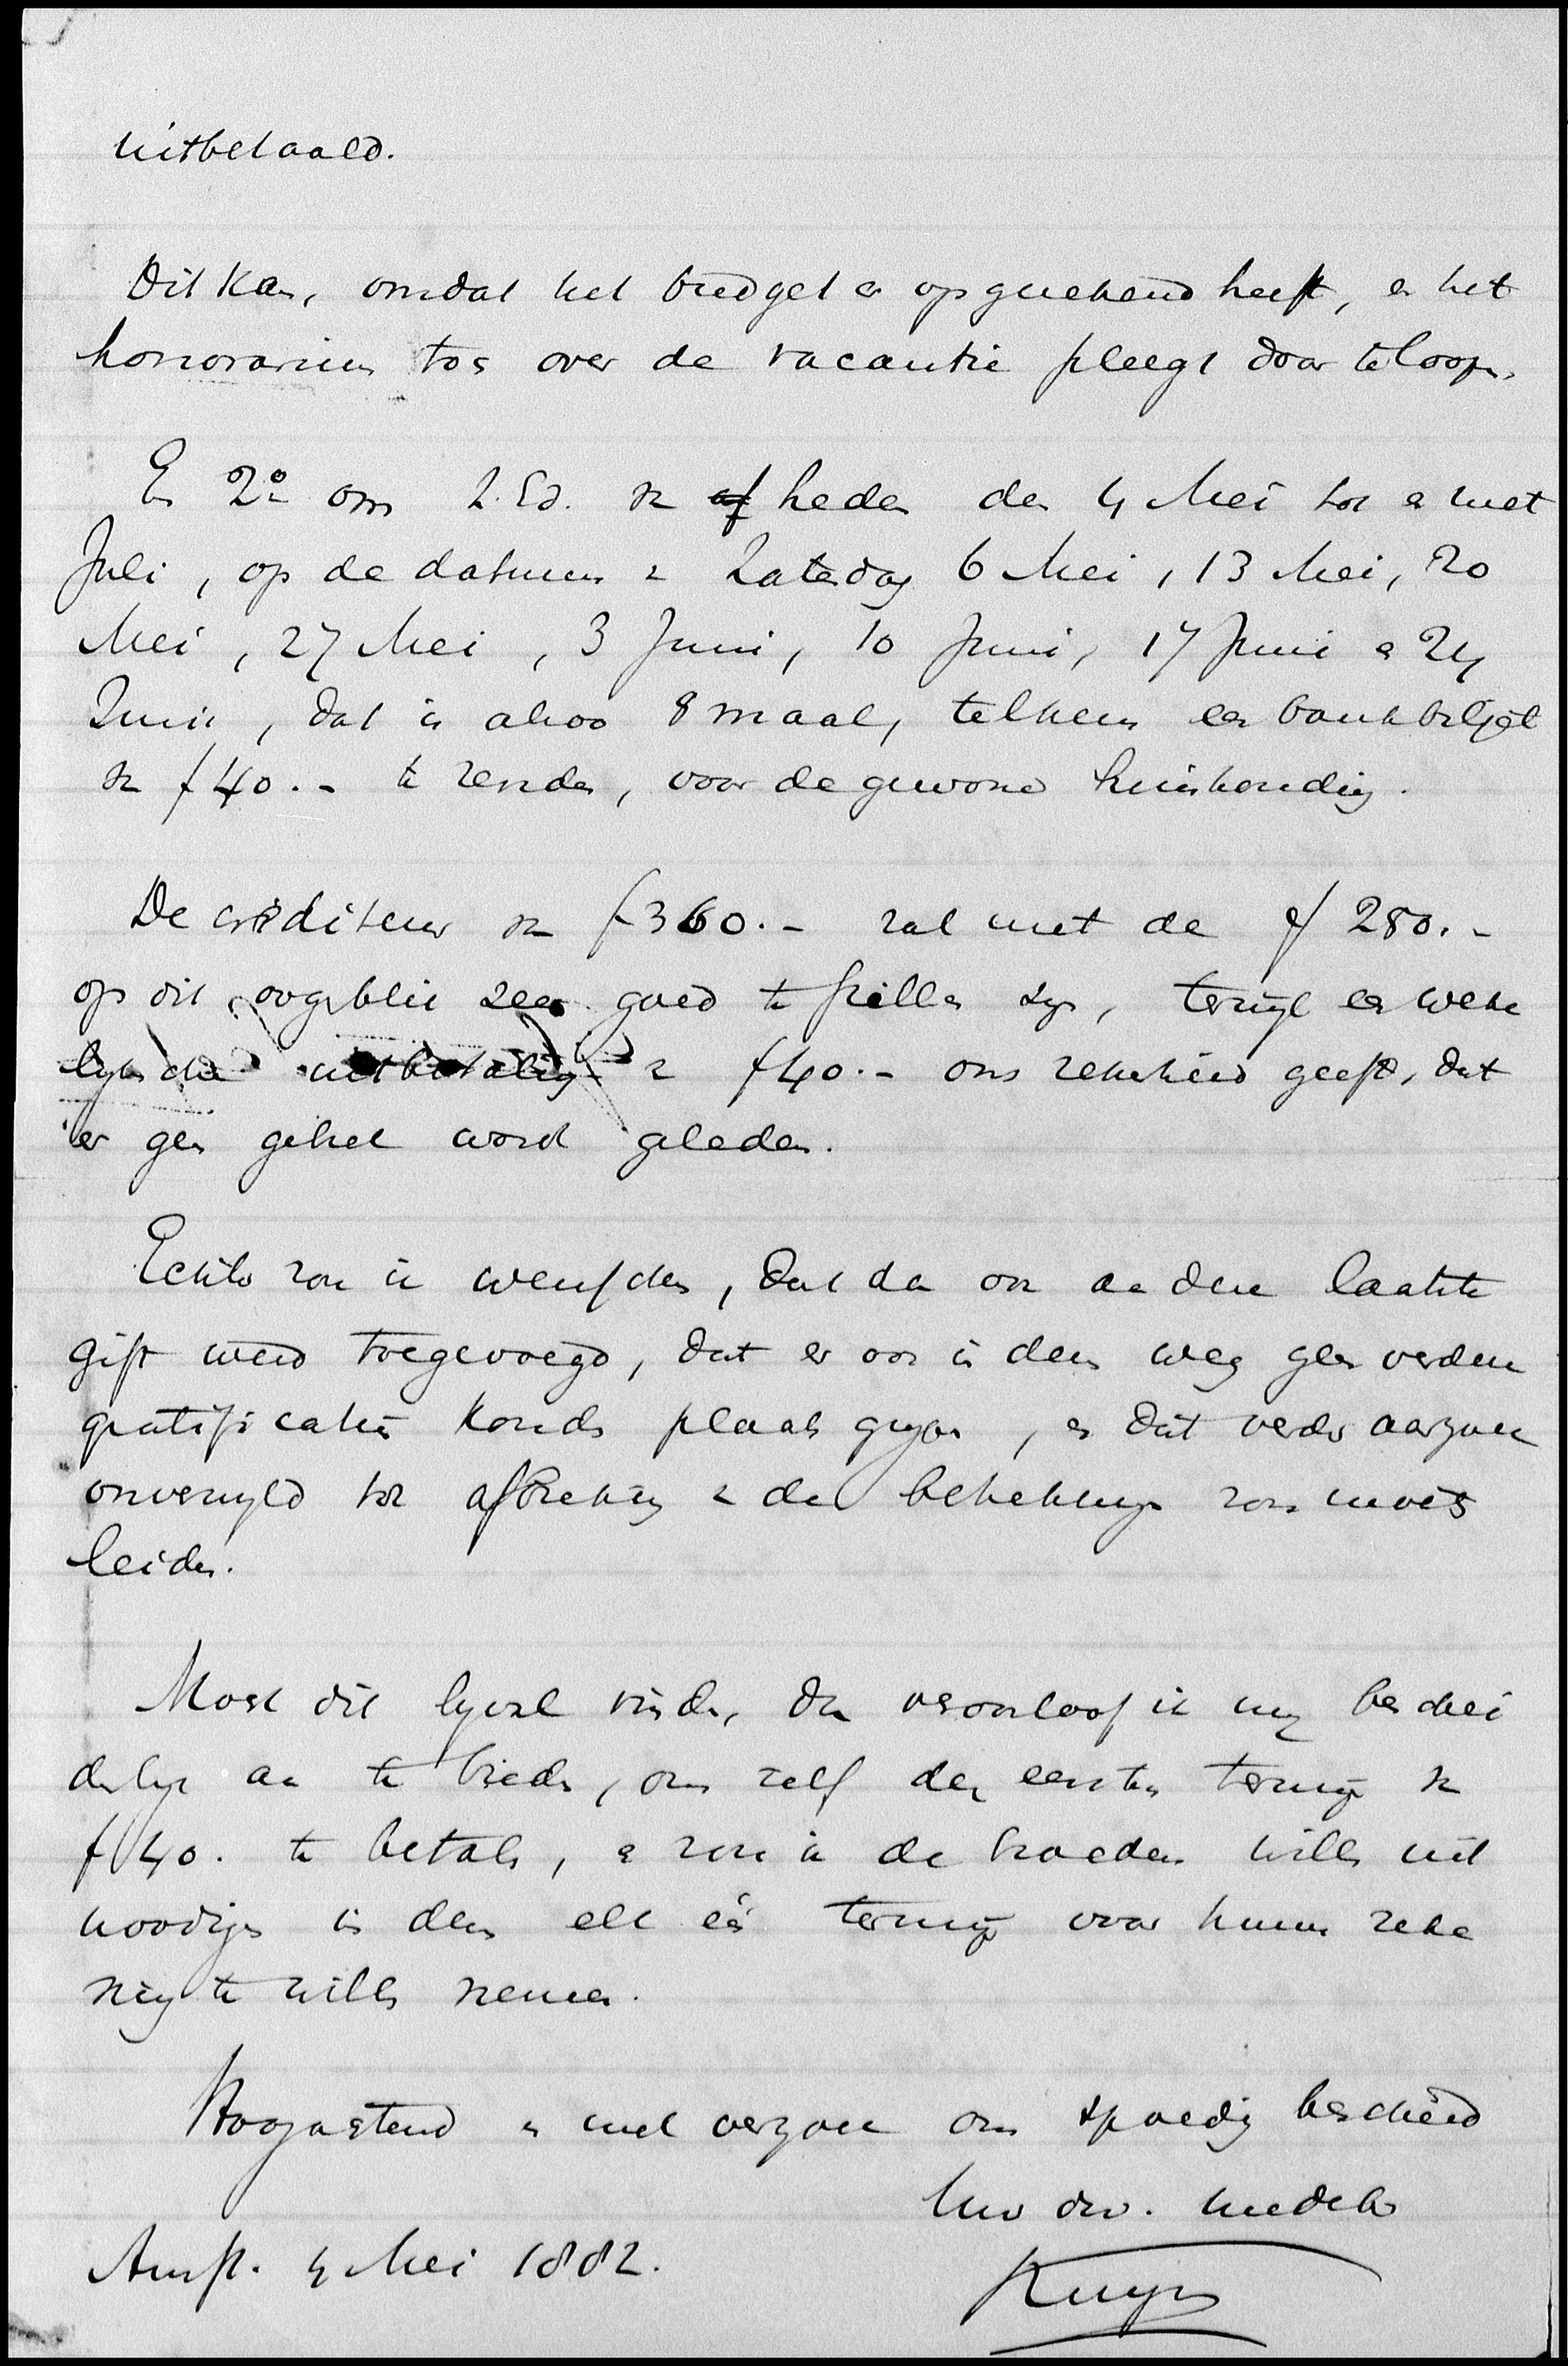 uitbetaald.
Dit kan, omdat het budget er op gerekend heeft, en het
honorarium tog over de vacantie pleegt door te loopen.
En 2º om Z.Ed. van af heden den 4 Mei tot en met
Juli, op de datums van Zaterdag 6 Mei, 13 Mei, 20
Mei, 27 Mei, 3 Juni, 10 Juni, 17 Juni en 24
Junij, dat is alzoo 8 maal, telkens een bankbiljet
van f 40.- te zenden, voor de gewone huishouding.
De crediteur van f 360.- zal met de f 280.-
op dit oogenblik zeer goed te stillen zijn, terwijl een weke
lijksche uitbetaling van f 40.- ons zekerheid geeft, dat
er geen gebrek wordt geleden.
Echter zou ik wenschen, dat dan ook aan deze laatste
gift werd toegevoegd, dat er ook in dezen weg geen verdere
gratificatie konde plaats grijpen, en dat verder aanzoek
onverwijld tot afbreking van de betrekking zou moeten
leiden.
Mogt dit bijval vinden, dan veroorloof ik mij beschei
denlijk aan te bieden, om zelf den eersten termijn van
f 40. te betalen, en zou ik de broeders willen uit
noodigen in dezen elk één termijn voor hunne reke
ning te willen nemen.
Hoogachtend en met verzoek om spoedig bescheid
Uw dw. medebr
Amst. 4 Mei 1882.
Kuyper